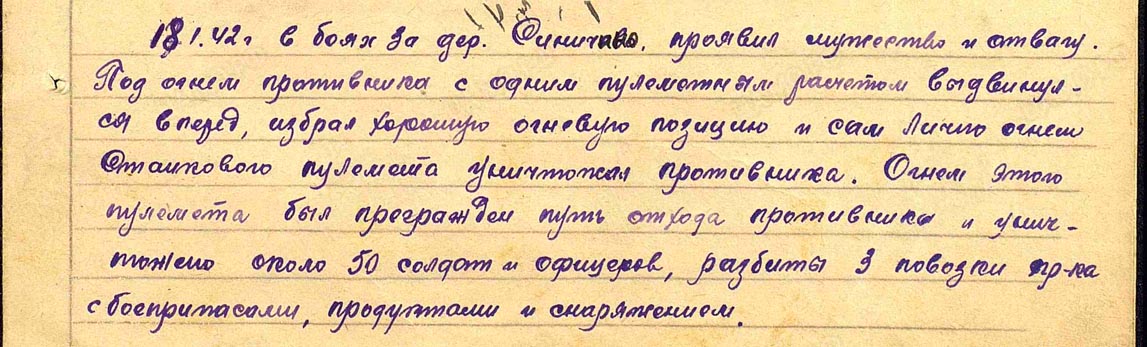 18.1.42г в боях за дер. Синичиво, проявил мужество и отвагу.
Под огнем противника с одним пулеметным расчетом выдвинул-
ся вперед, избрал хорошую огневую позицию и сам лично огнем
Станкового пулемета уничтожал противника. Огнем этого
пулемета был прегражден путь отхода противника и унич-
тожено около 50 солдат и офицеров, разбиты 3 повозки пр-ка
с боеприпасами, продуктами и снаряжением.